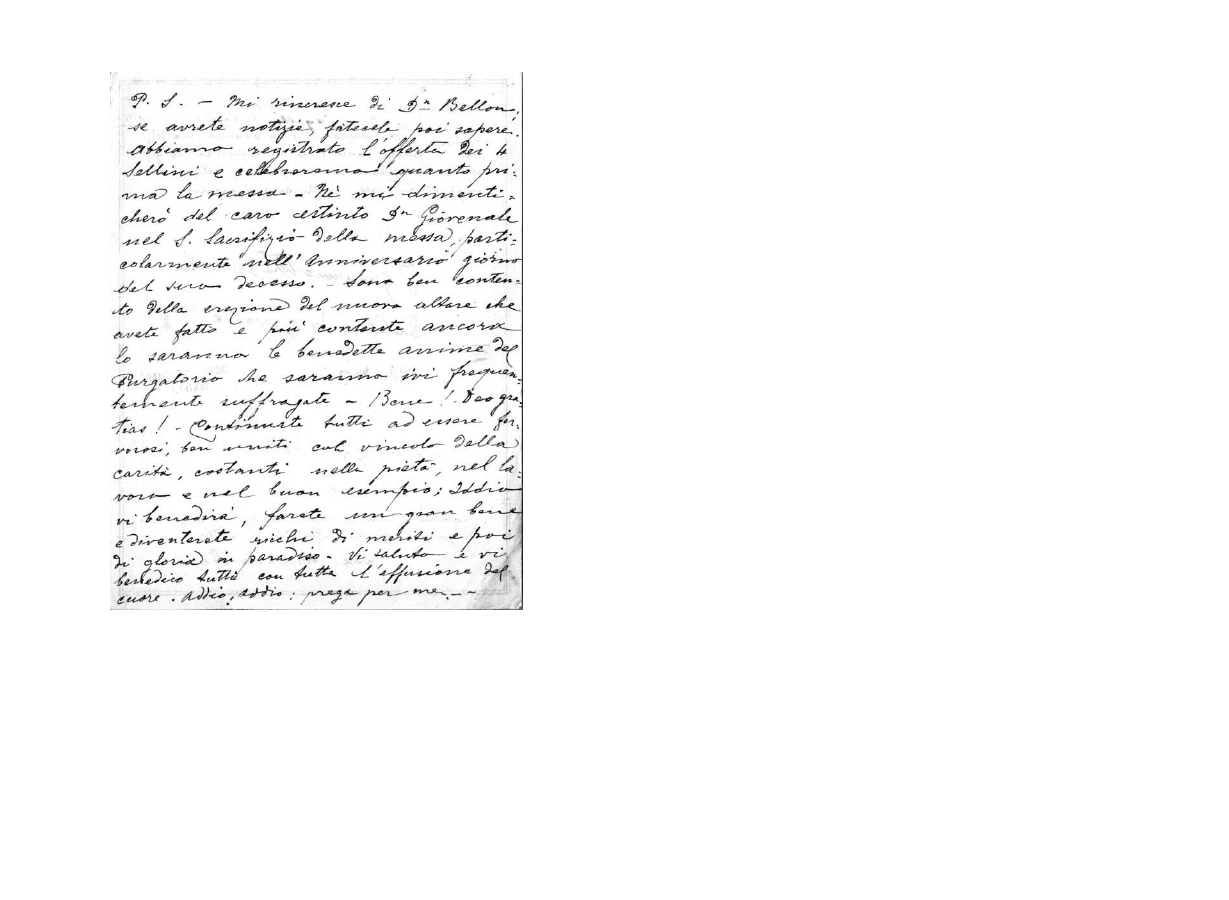 P. S. — Mi rincresce di Dn Bellon;
se avrete notizie, fatecele poi sapere.
Abbiamo registrato l'offerta dei 4
Sellini e celebreremo quanto pri-
ma la messa — Nè mi dimenti-
cherò del caro estinto Dn Giovenale
nel S. Sacrifizio della messa, parti-
colarmente nell'Anniversario giorno
del suo decesso. — Sono ben conten-
to della erezione del nuovo altare che
avete fatto e più contente ancora
lo saranno le benedette anime del
Purgatorio che saranno ivi frequen-
temente suffragate — Bene! Deo gra-
tias! — Continuate tutti ad essere fer-
vorosi, ben uniti col vincolo della
carità, costanti nella pietà, nel la-
voro e nel buon esempio; Iddio
vi benedirà, farete un gran bene
e diventerete ricchi di meriti e poi
di gloria in paradiso — Vi saluto e vi
benedico tutti con tutta l'effusione del
cuore. Addio, addio: prega per me — —